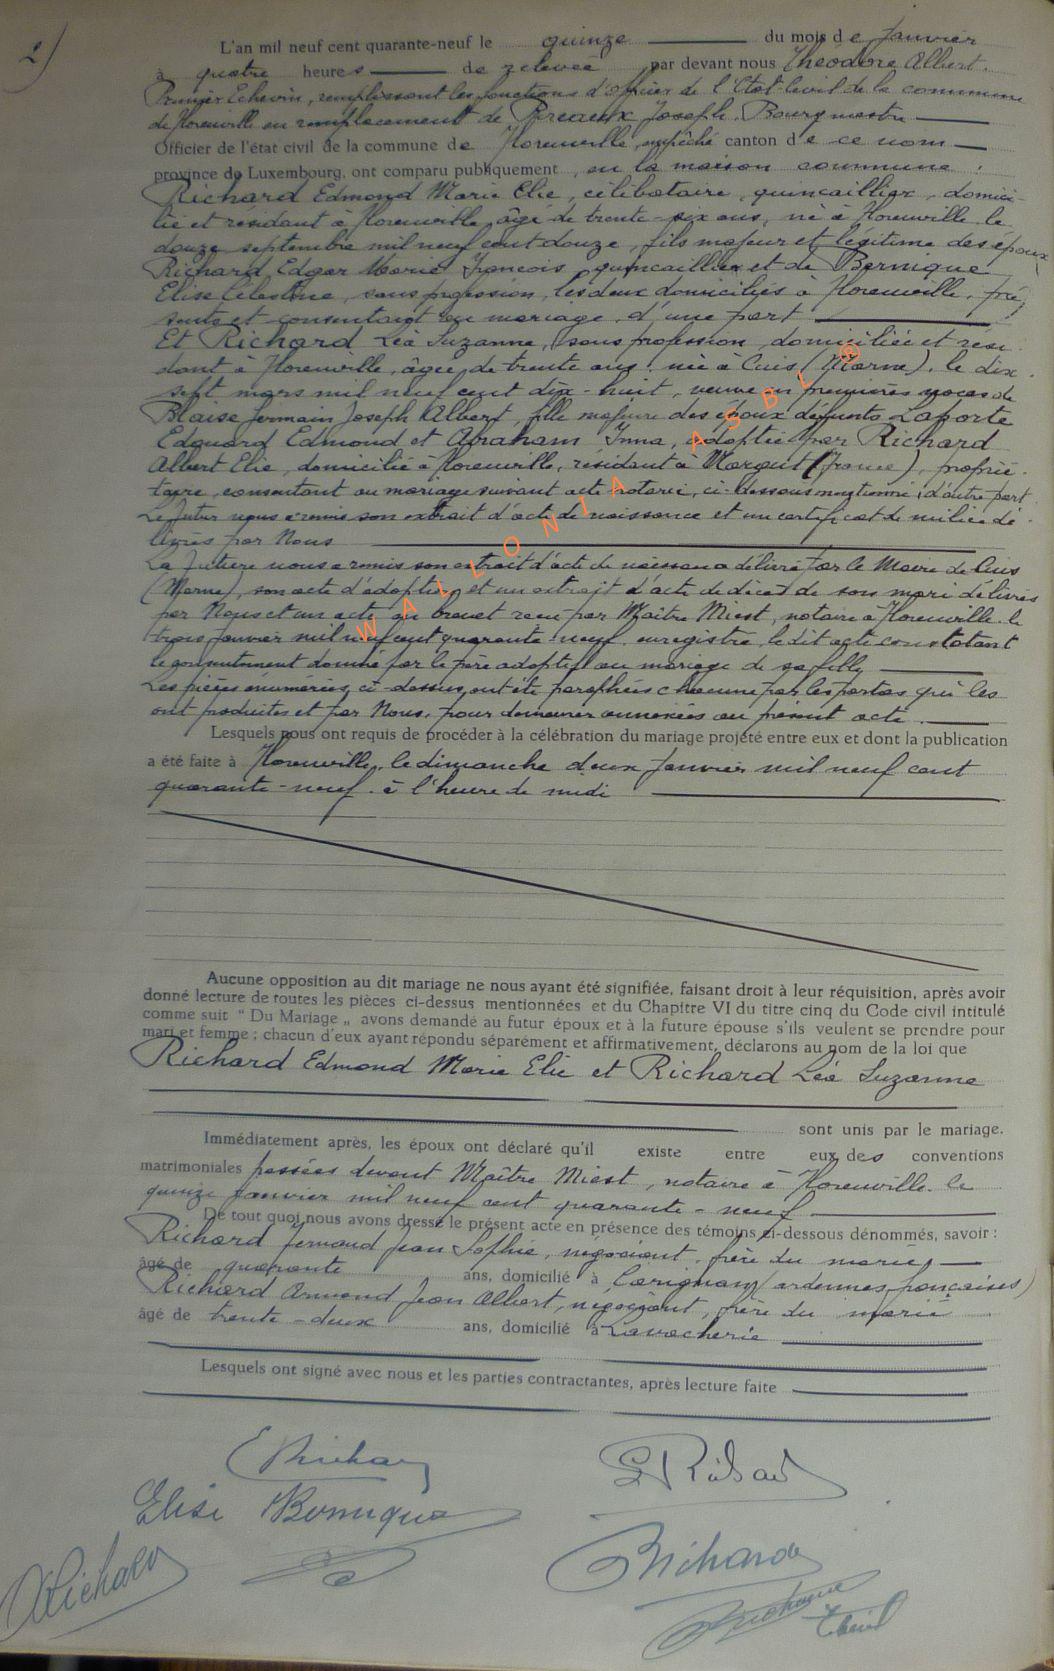 2)
L'an mil neuf cent quarante-neuf le quinze du mois de Janvier
à quatre heures de relevée par devant nous Théodore Albert
Echevin, remplissant les fonctions d'officier de l'Etat-Civil de la commune
de Florenville en remplacement de Joseph, Bourgmestre
Officier de l'état civil de la commune de Florenville, empêché canton de ce nom
province de Luxembourg, ont comparu publiquement, en la maison commune :
Richard Edmond Marie Elie, célibataire, quincaillier, domici-
lié et résidant à Florenville, âgé de trente-six ans, né à Florenville le
douze septembre mil neuf cent douze, fils majeur et légitime des époux
Richard Edgar Marie François, quincaillier et de Bernique
Elise Célestine, sans profession, les deux domiciliés à Florenville, pré-
sents et consentant au mariage, d'une part
Et Richard Léa Suzanne, sans profession, domiciliée et rési-
dant à Florenville, âgée de trente ans, née à Cuis (Marne), le dix-
sept mars mil neuf cent dix-huit, veuve en premières noces de
Blaise Germain Joseph Albert, fille majeure des époux défunts Laporte
Edouard Edmond et Abraham Irma, adoptée par Richard
Albert Elie, domicilié à Florenville, résidant à Margut (France), proprié-
taire, consentant au mariage suivant acte notarié, ci-dessous mentionné, d'autre part
Le futur nous a remis son extrait d'acte de naissance et un certificat de milice dé-
livrés par Nous
La future nous a remis son extrait d'acte de naissance délivré par le Maire de Cuis
(Marne), son acte d'adoption et un extrait d'acte de décès de son mari délivrés
par Nous et un acte en brevet reçu par Maître Miest, notaire à Florenville le
trois Janvier mil neuf cent quarante-neuf, enregistré, le dit acte constatant
le consentement donné par le père adoptif au mariage de sa fille
Les pièces énumérées ci-dessus ont été paraphées chacune par les parties qui les
ont produites et par Nous, pour demeurer annexées au présent acte.
Lesquels nous ont requis de procéder à la célébration du mariage projeté entre eux et dont la publication
a été faite à Florenville, le dimanche deux Janvier mil neuf cent
quarante-neuf à l'heure de midi
Aucune opposition au dit mariage ne nous ayant été signifiée, faisant droit à leur réquisition, après avoir
donné lecture de toutes les pièces ci-dessus mentionnées et du Chapitre VI du titre cinq du Code civil intitulé
comme suit “ Du Mariage „ avons demandé au futur époux et à la future épouse s'ils veulent se prendre pour
mari et femme ; chacun d'eux ayant répondu séparément et affirmativement, déclarons au nom de la loi que
Richard Edmond Marie Elie et Richard Léa Suzanne
sont unis par le mariage.
Immédiatement après, les époux ont déclaré qu'il existe entre eux des conventions
matrimoniales passées devant Maître Miest, notaire à Florenville le
quinze Janvier mil neuf cent quarante-neuf
De tout quoi nous avons dressé le présent acte en présence des témoins ci-dessous dénommés, savoir :
Richard Fernand Jean Sophie, négociant, frère du marié
âgé de quarante ans, domicilié à Carignan (ardennes françaises)
Richard Armand Jean Albert, négociant, frère du marié
âgé de trente-deux ans, domicilié à Lavacherie
Lesquels ont signé avec nous et les parties contractantes, après lecture faite
E Richard
L Richard
Elise Bernique
Richard
Richard
WALLONIA ASBL ®